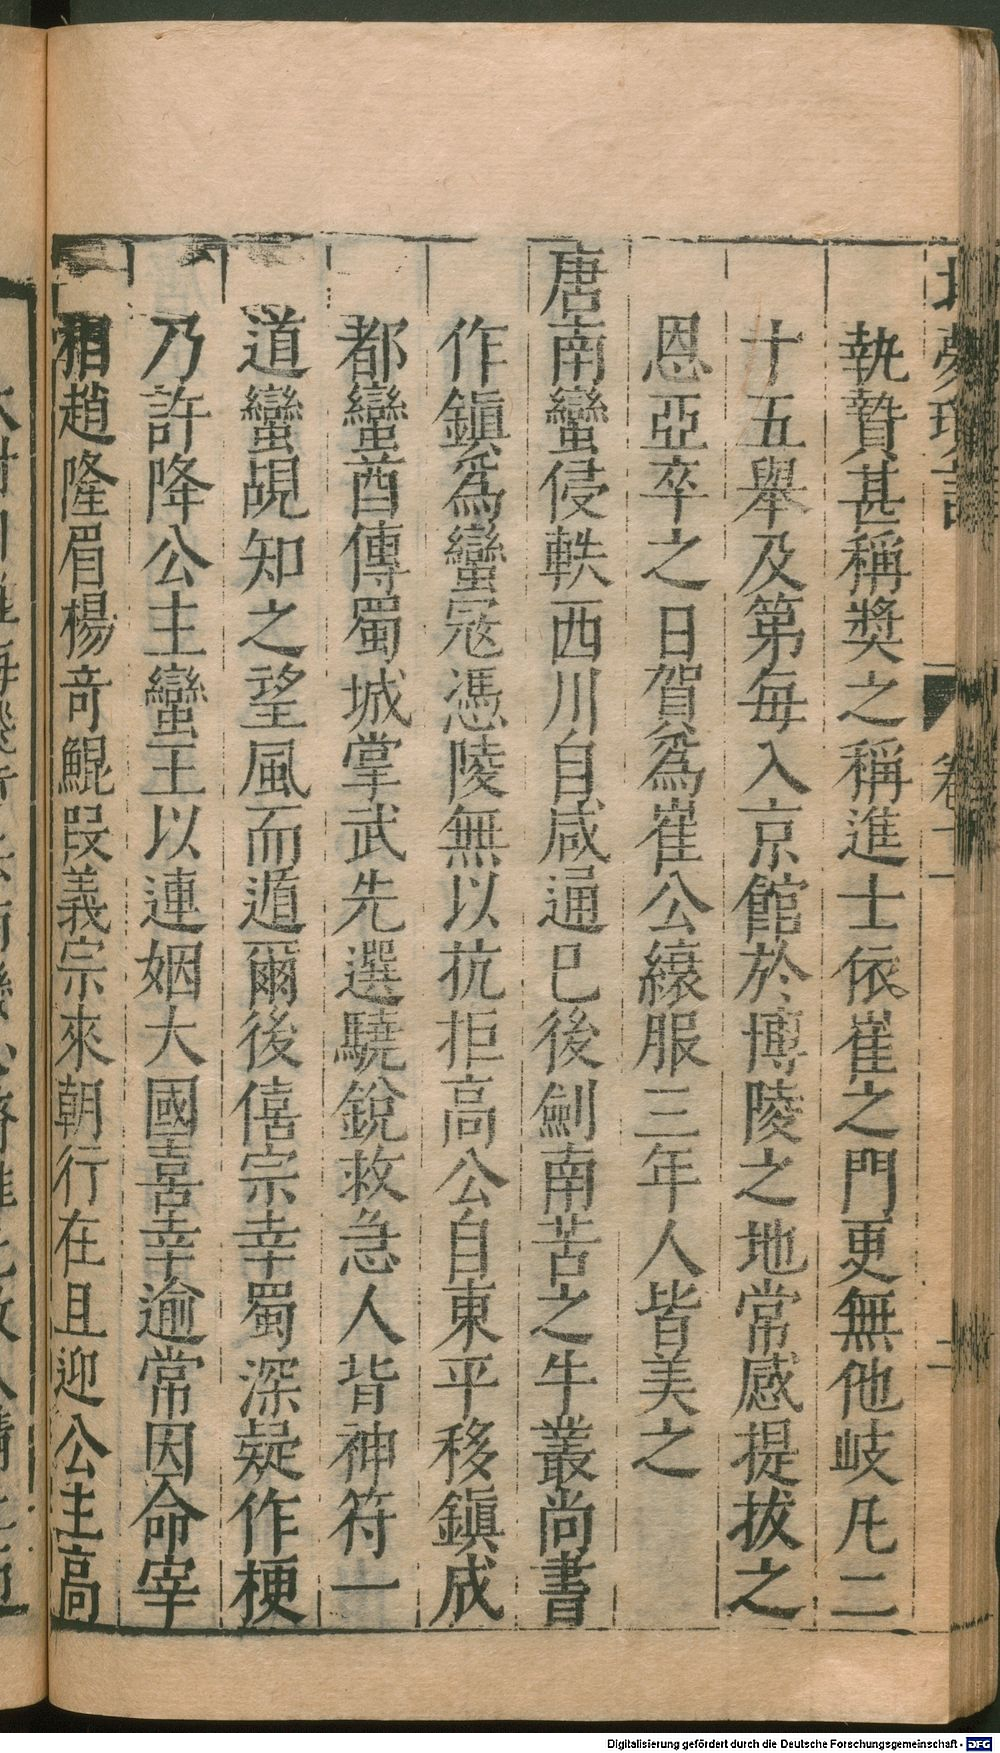 執贄甚稱奬之稱進士依崔之門更無他岐凡二
十五舉及第每入京館於博陵之地常感提拔之
恩亞卒之日賀爲崔公縗服三年人皆美之
唐南蠻侵軼西川自咸通已後劍南苦之牛叢尚書
作鎮爲蠻冦憑陵無以抗拒高公自東平移鎮成
都蠻酋傳蜀城掌武先選驍銳救急人背神符一
道蠻覘知之望風而遁爾後僖宗幸蜀深疑作梗
乃許降公主蠻王以連姻大國喜幸逾常因命宰
相趙隆眉楊竒鯤叚義宗來朝行在且迎公主高
Digitalisierung gefördert durch die Deutsche Forschungsgemeinschaft - DFG